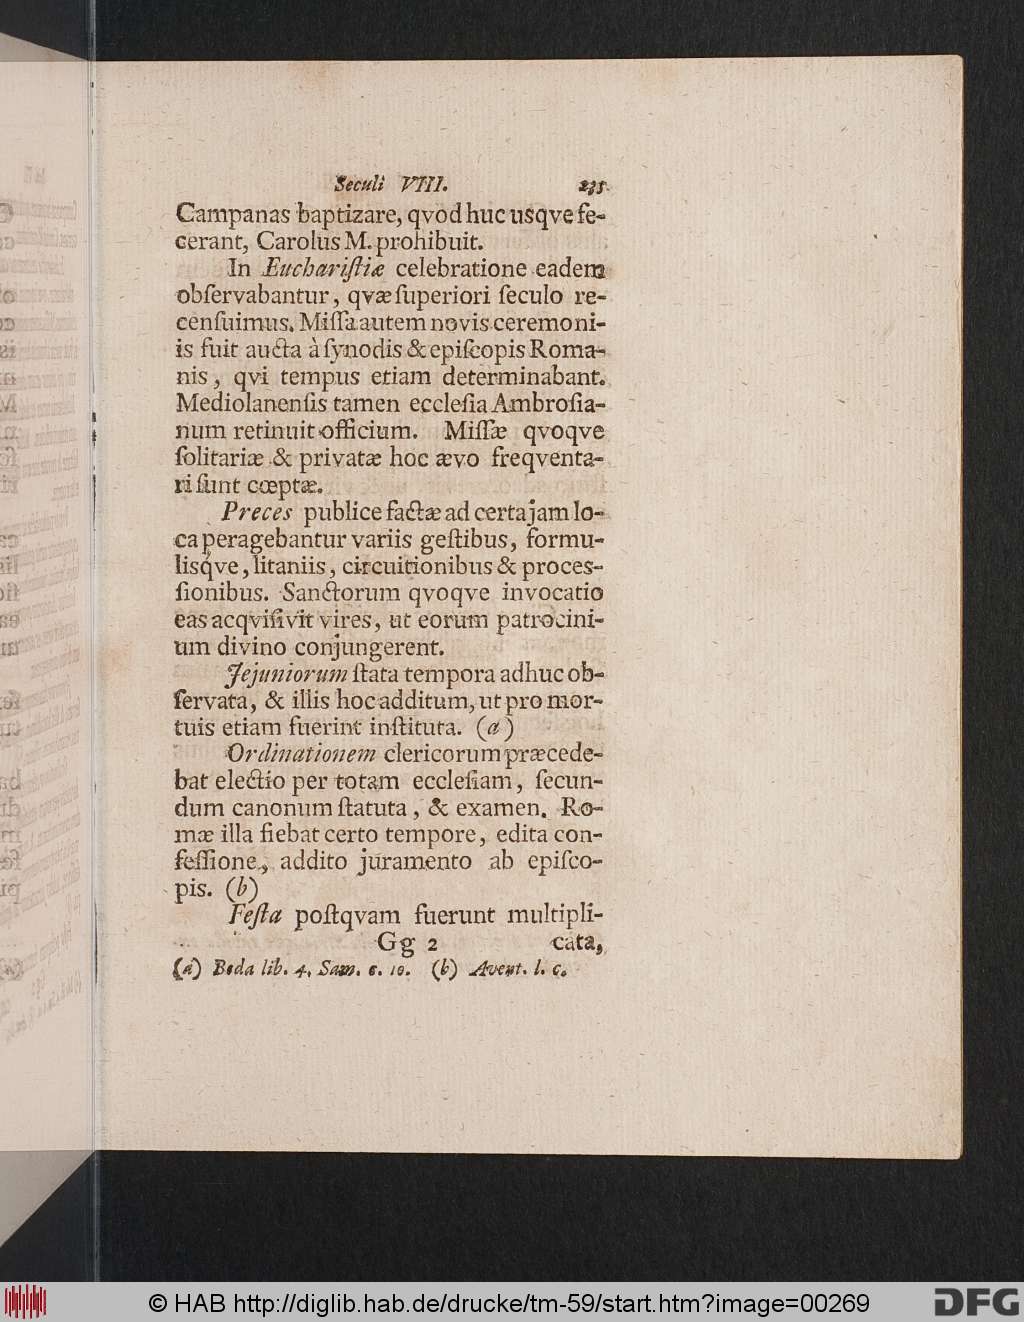 Seculi VIII. 235
Campanas baptizare, qvod huc usqve fe-
cerant, Carolus M. prohibuit.
In Euchariſtiæ celebratione eadem
obſervabantur, qvæ ſuperiori ſeculo re-
cenſuimus. Miſſa autem novis ceremoni-
is fuit aucta à ſynodis & epiſcopis Roma-
nis, qvi tempus etiam determinabant.
Mediolanenſis tamen eccleſia Ambroſia-
num retinuit officium. Miſſæ qvoqve
ſolitariæ & privatæ hoc ævo freqventa-
ri ſunt cœptæ.
Preces publice factæ ad certa jam lo-
ca peragebantur variis geſtibus, formu-
lisq́ve, litaniis, circuitionibus & proces-
ſionibus. Sanctorum qvoqve invocatio
eas acqviſivit vires, ut eorum patrocini-
um divino conjungerent.
Jejuniorum ſtata tempora adhuc ob-
ſervata, & illis hoc additum, ut pro mor-
tuis etiam fuerint inſtituta. (a)
Ordinationem clericorum præcede-
bat electio per totam eccleſiam, ſecun-
dum canonum ſtatuta, & examen. Ro-
mæ illa fiebat certo tempore, edita con-
feſſione, addito juramento ab epiſco-
pis. (b)
Feſta poſtqvam fuerunt multipli-
Gg 2 cata,
(a) Beda lib. 4. Sam. c. 10. (b) Avent. l. c.
© HAB http://diglib.hab.de/drucke/tm-59/start.htm?image=00269
DFG